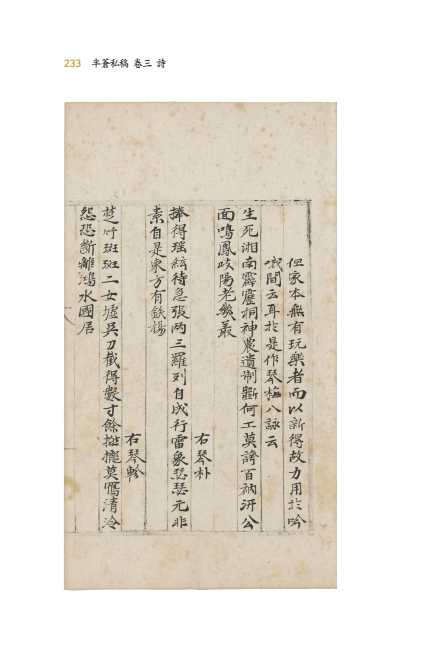 233 半蒼私稿 卷三 詩
但家本無有玩樂者而以新得故力用於吟
哦間云耳於是作琴梅八詠云
生死湘南霹靂桐神農遺制斷何工莫誇百衲汧公
面鳴鳳岐陽老幾叢
右琴朴
捧得瑤絃待急張兩三羅列自成行雷象瑟瑟元非
素自是東方有鉄楊
右琴軫
楚竹斑斑二女墟吳刀截得數寸餘摐摐莫嚮清泠
怨恐斷離鴻水國居